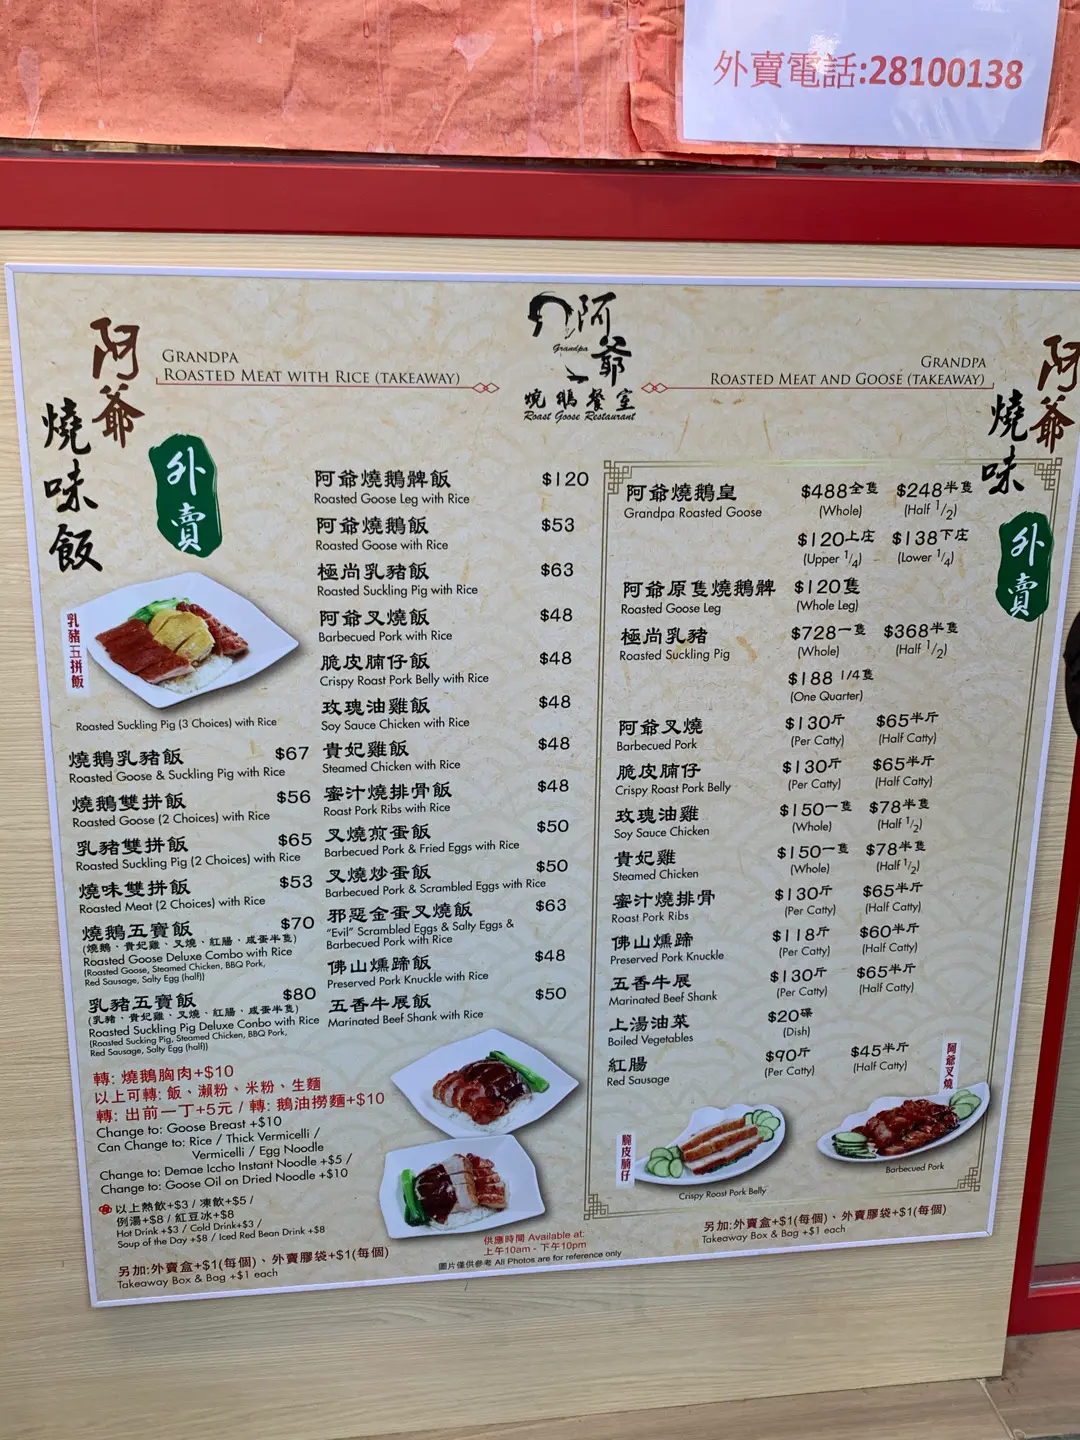 外賣電話:28100138
阿爺
燒味飯
外賣
GRANDPA
ROASTED MEAT WITH RICE (TAKEAWAY)
阿爺
Grandpa
燒鵝餐室
Roast Goose Restaurant
GRANDPA
ROASTED MEAT AND GOOSE (TAKEAWAY)
阿爺
燒味
外賣
乳豬五拼飯
Roasted Suckling Pig (3 Choices) with Rice
燒鵝乳豬飯 $67
Roasted Goose & Suckling Pig with Rice
燒鵝雙拼飯 $56
Roasted Goose (2 Choices) with Rice
乳豬雙拼飯 $65
Roasted Suckling Pig (2 Choices) with Rice
燒味雙拼飯 $53
Roasted Meat (2 Choices) with Rice
燒鵝五寶飯 $70
(燒鵝、貴妃雞、叉燒、紅腸、咸蛋半隻)
Roasted Goose Deluxe Combo with Rice
(Roasted Goose, Steamed Chicken, BBQ Pork,
Red Sausage, Salty Egg (half))
乳豬五寶飯 $80
(乳豬、貴妃雞、叉燒、紅腸、咸蛋半隻)
Roasted Suckling Pig Deluxe Combo with Rice
(Roasted Sucking Pig, Steamed Chicken, BBQ Pork,
Red Sausage, Salty Egg (half))
轉: 燒鵝胸肉+$10
以上可轉: 飯、瀨粉、米粉、生麵
轉: 出前一丁+5元 / 轉: 鵝油撈麵+$10
Change to: Goose Breast +$10
Can Change to: Rice / Thick Vermicelli /
Vermicelli / Egg Noodle
Change to: Demae Iccho Instant Noodle +$5 /
Change to: Goose Oil on Dried Noodle +$10
以上熱飲+$3 / 凍飲+$5 /
例湯+$8 / 紅豆冰+$8
Hot Drink +$3 / Cold Drink+$3 /
Soup of the Day +$8 / Iced Red Bean Drink +$8
另加:外賣盒+$1(每個)、外賣膠袋+$1(每個)
Takeaway Box & Bag +$1 each
阿爺燒鵝髀飯 $120
Roasted Goose Leg with Rice
阿爺燒鵝飯 $53
Roasted Goose with Rice
極尚乳豬飯 $63
Roasted Suckling Pig with Rice
阿爺叉燒飯 $48
Barbecued Pork with Rice
脆皮腩仔飯 $48
Crispy Roast Pork Belly with Rice
玫瑰油雞飯 $48
Soy Sauce Chicken with Rice
貴妃雞飯 $48
Steamed Chicken with Rice
蜜汁燒排骨飯 $48
Roast Pork Ribs with Rice
叉燒煎蛋飯 $50
Barbecued Pork & Fried Eggs with Rice
叉燒炒蛋飯 $50
Barbecued Pork & Scrambled Eggs with Rice
邪惡金蛋叉燒飯 $63
"Evil" Scrambled Eggs & Salty Eggs &
Barbecued Pork with Rice
佛山燻蹄飯 $48
Preserved Pork Knuckle with Rice
五香牛展飯 $50
Marinated Beef Shank with Rice
供應時間 Available at:
上午10am - 下午10pm
圖片僅供參考 All Photos are for reference only
阿爺燒鵝皇 $488全隻 $248半隻
Grandpa Roasted Goose (Whole) (Half 1/2)
$120上庄 $138下庄
(Upper 1/4) (Lower 1/4)
阿爺原隻燒鵝髀 $120隻
Roasted Goose Leg (Whole Leg)
極尚乳豬 $728一隻 $368半隻
Roasted Suckling Pig (Whole) (Half 1/2)
$188 1/4隻
(One Quarter)
阿爺叉燒 $130斤 $65半斤
Barbecued Pork (Per Catty) (Half Catty)
脆皮腩仔 $130斤 $65半斤
Crispy Roast Pork Belly (Per Catty) (Half Catty)
玫瑰油雞 $150一隻 $78半隻
Soy Sauce Chicken (Whole) (Half 1/2)
貴妃雞 $150一隻 $78半隻
Steamed Chicken (Whole) (Half 1/2)
蜜汁燒排骨 $130斤 $65半斤
Roast Pork Ribs (Per Catty) (Half Catty)
佛山燻蹄 $118斤 $60半斤
Preserved Pork Knuckle (Per Catty) (Half Catty)
五香牛展 $130斤 $65半斤
Marinated Beef Shank (Per Catty) (Half Catty)
上湯油菜 $20碟
Boiled Vegetables (Dish)
紅腸 $90斤 $45半斤
Red Sausage (Per Catty) (Half Catty)
脆皮腩仔
Crispy Roast Pork Belly
阿爺叉燒
Barbecued Pork
另加:外賣盒+$1(每個)、外賣膠袋+$1(每個)
Takeaway Box & Bag +$1 each